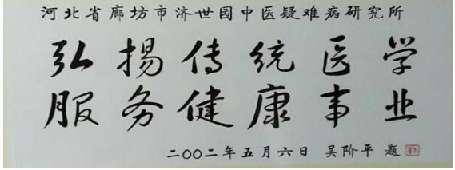 河北省廊坊市济世园中医疑难病研究所
弘揚传统医学
服务健康事业
二〇〇二年五月六日 吴阶平 题